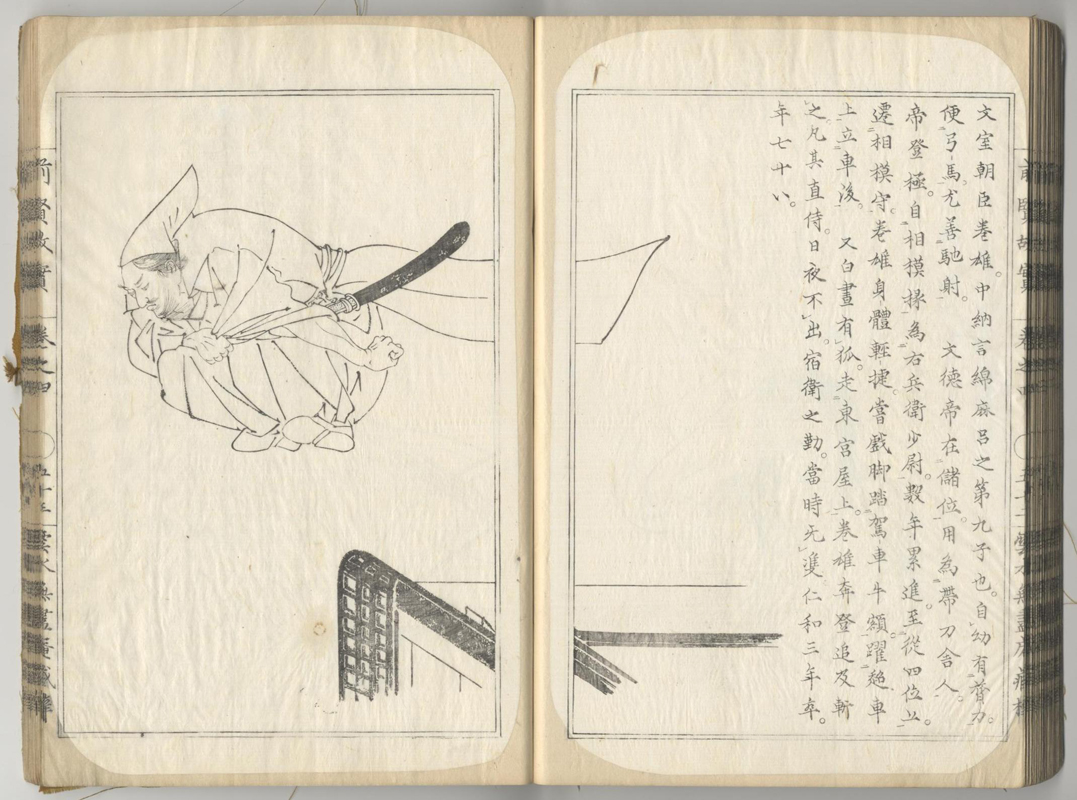 文室朝臣巻雄。中納言綿麻呂之第九子也。自幼有膂力。
便弓馬。尤善馳射。 文德帝在儲位。用為帶刀舍人。
帝登極。自相模掾為右兵衛少尉。數年累進。至從四位上。
遷相模守。巻雄身體輕捷。嘗戲脚踏駕車牛額。躍超車
上立車後。 又白晝有狐。走東宮屋上。巻雄奔登追及斬
之。凡其直侍。日夜不出。宿衛之勤。當時无雙。仁和三年卒。
年七十八。
前賢故實
卷之四